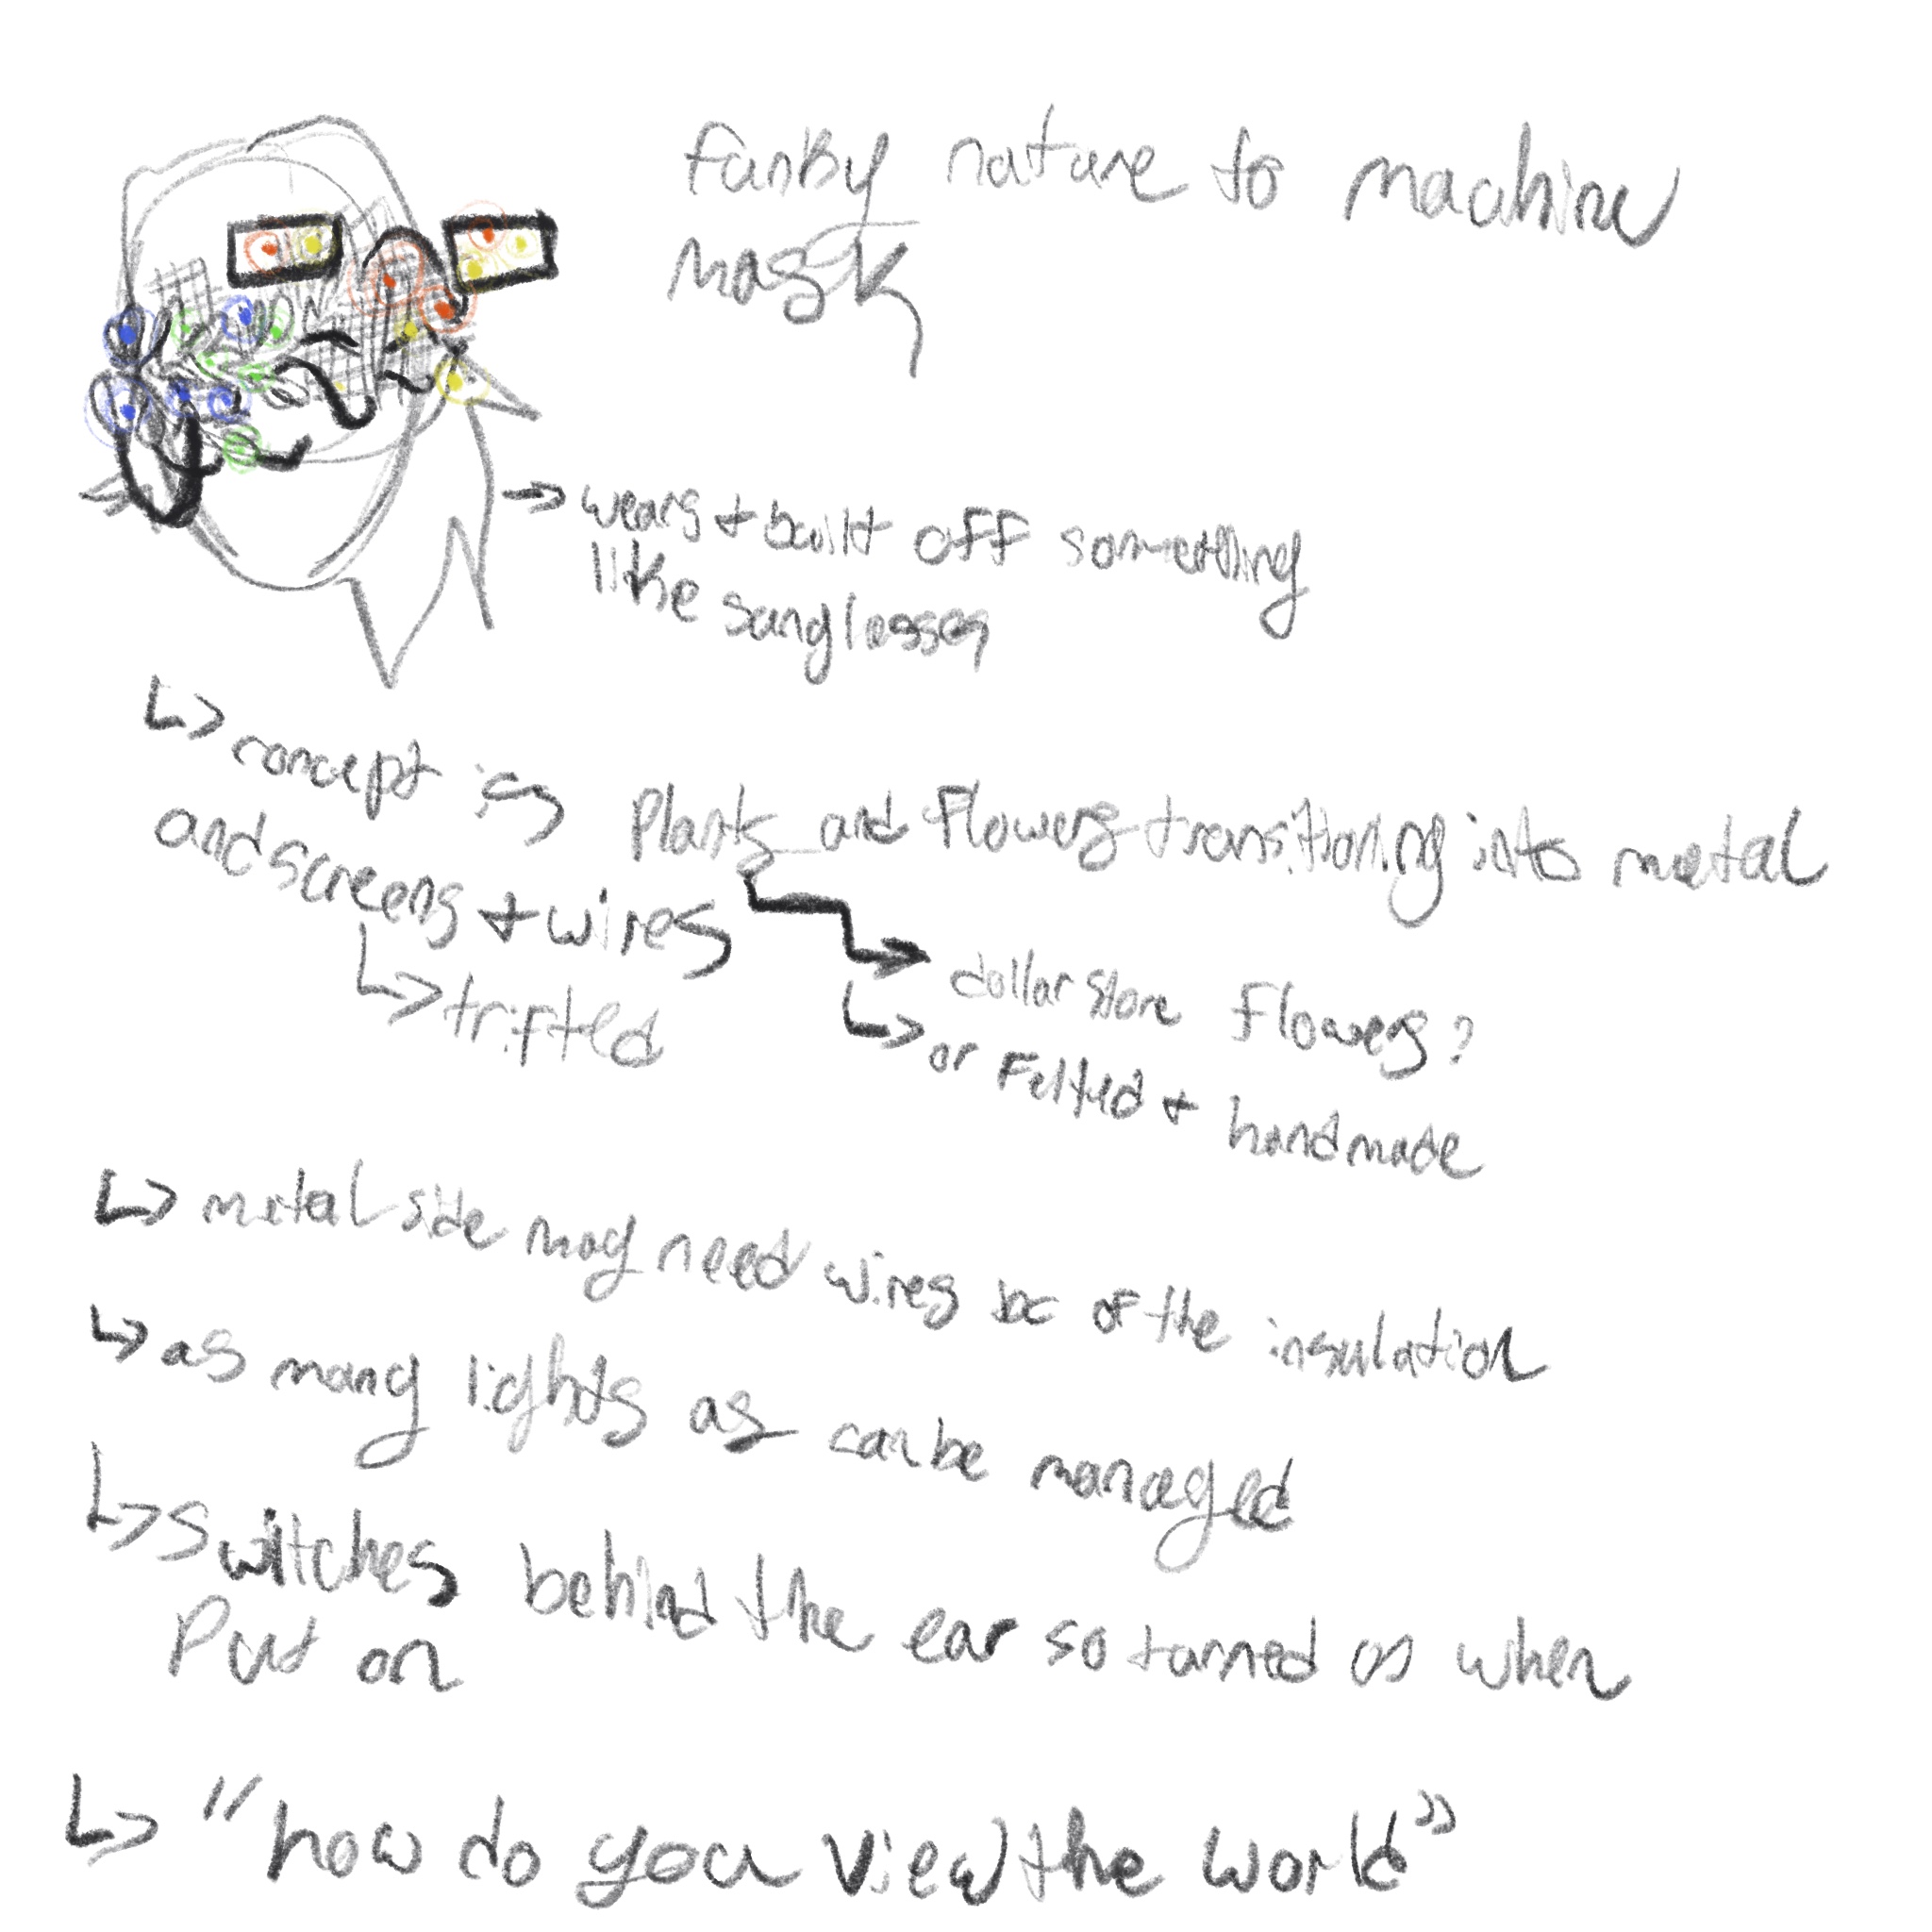 funky nature to machine
mask
→ wears + built off something
like sunglasses
↳ concept is plants and flowers transitioning into metal
and screens + wires
↳ trifted
→ dollar store flowers?
↳ or felted + handmade
↳ metal side may need wires bc of the insulation
↳ as many lights as can be managed
↳ switches behind the ear so turned on when
put on
↳ "how do you view the world"